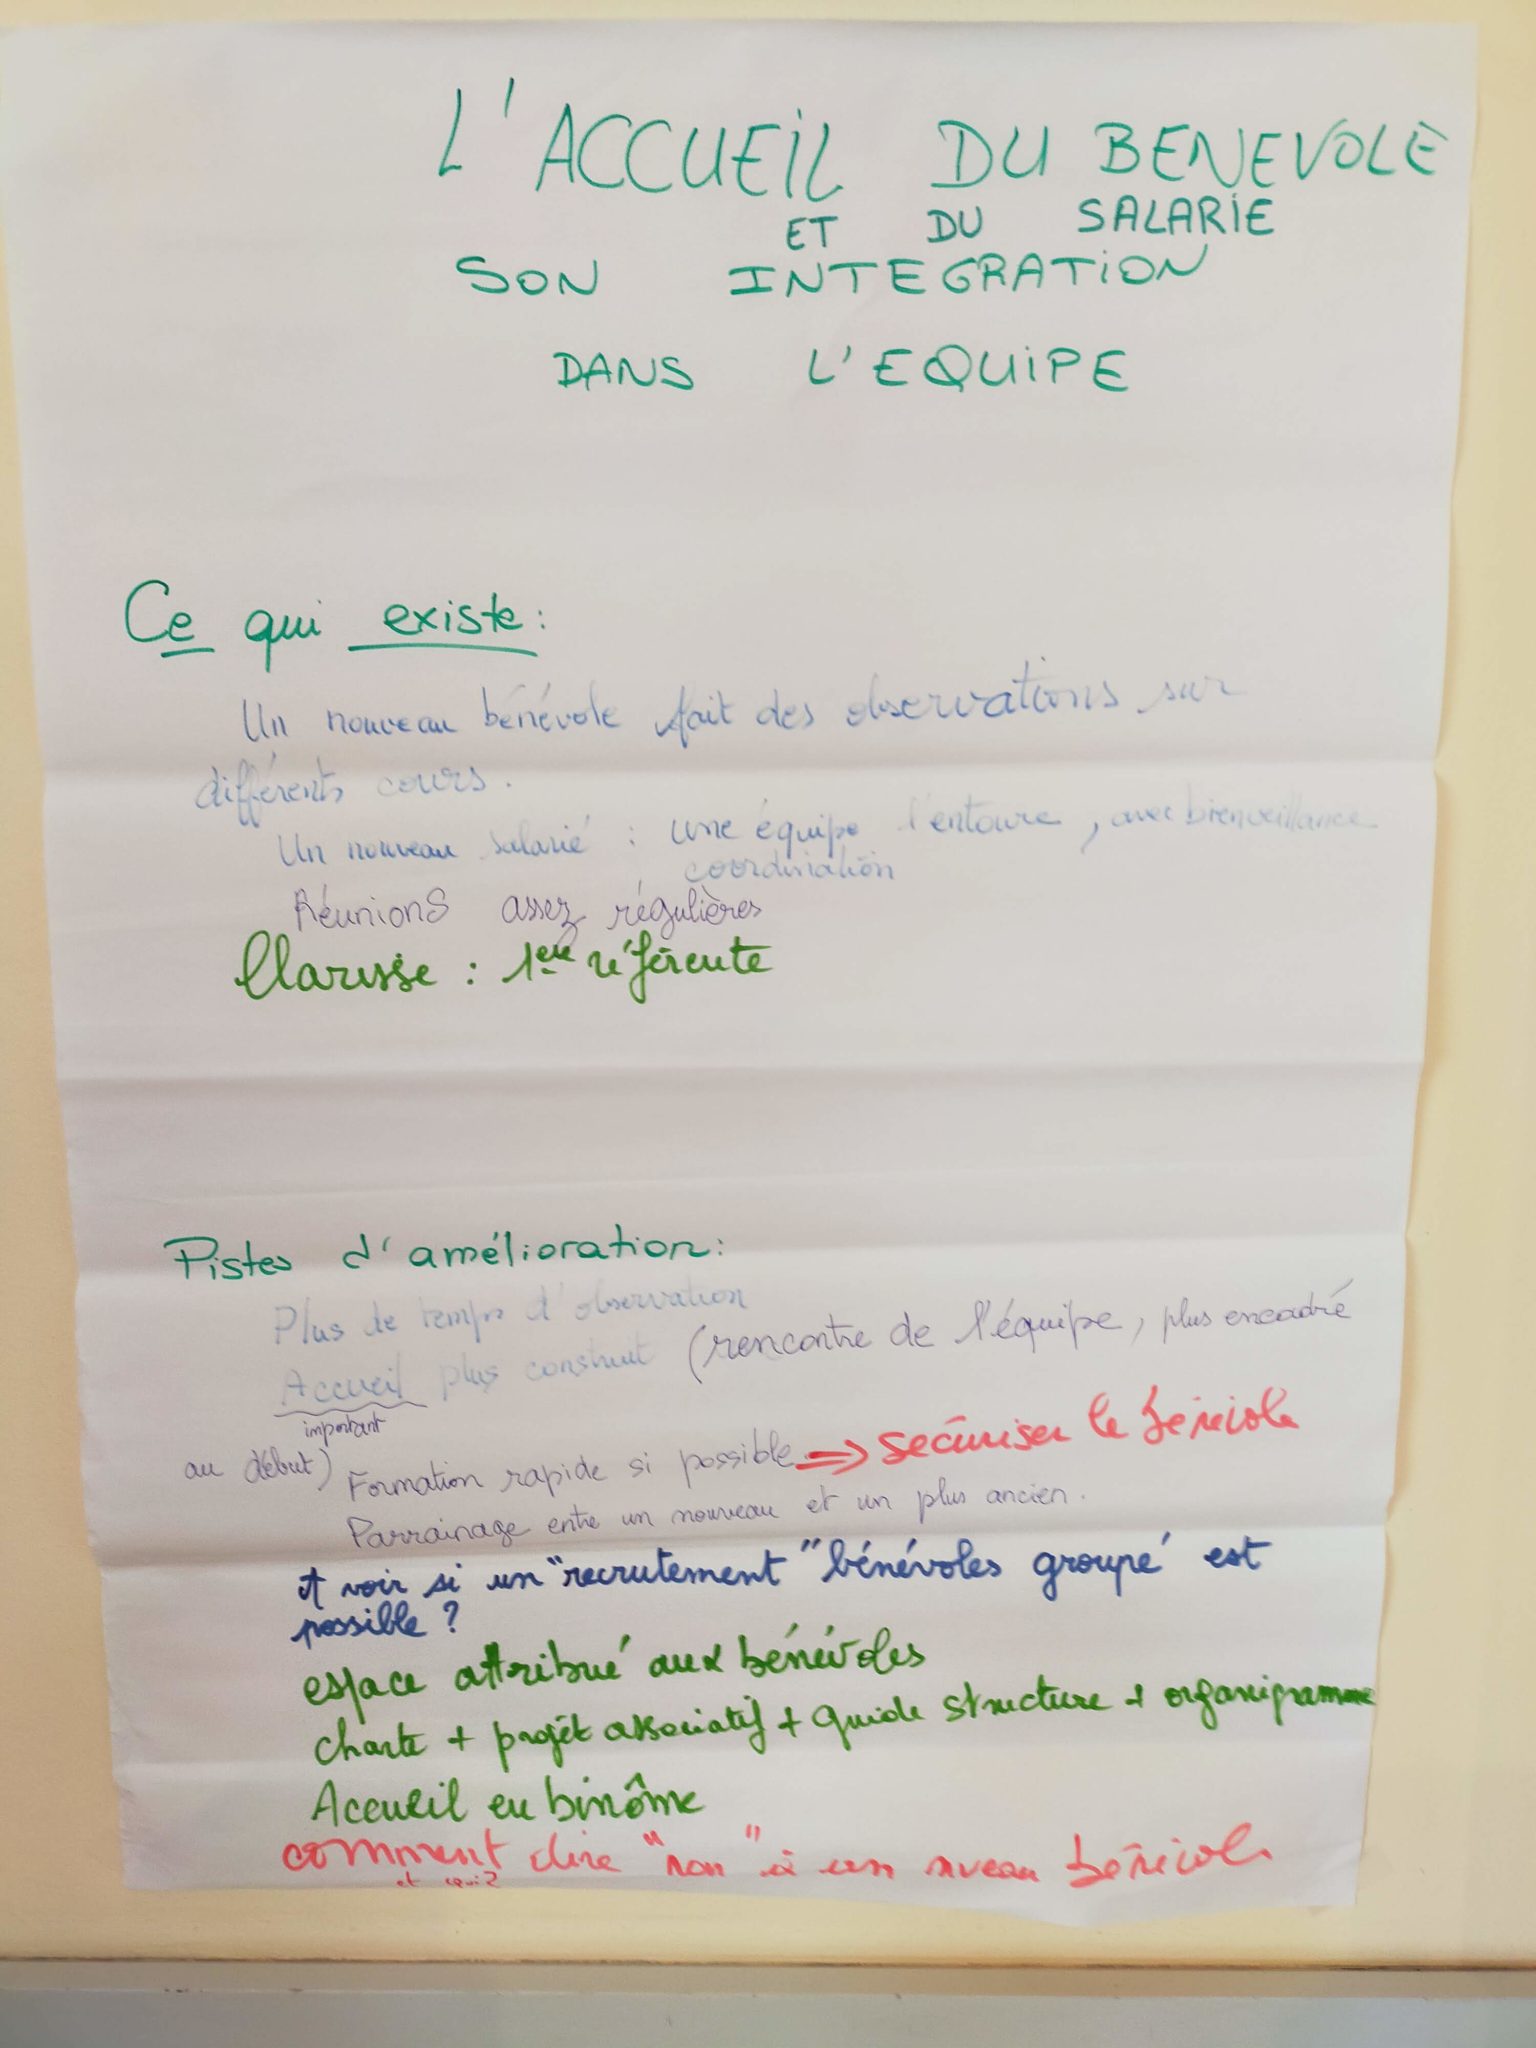 L'ACCUEIL DU BENEVOLE
ET DU SALARIE
SON INTEGRATION
DANS L'EQUIPE
Ce qui existe :
Un nouveau bénévole fait des observations sur
différents cours.
Un nouveau salarié : une équipe l'entoure, avec bienveillance
coordination
Réunions assez régulières
Clarisse : 1ère référente
Pistes d'amélioration :
Plus de temps d'observation
Accueil plus construit (rencontre de l'équipe, plus encadré
important
au début)
Formation rapide si possible. ⇒ sécuriser le bénévole
Parrainage entre un nouveau et un plus ancien.
A voir si un "recrutement" bénévoles groupé est
possible ?
espace attribué aux bénévoles
charte + projet associatif + guide structure + organigramme
Accueil en binôme
comment dire "non" à un nveau bénévole
et qui ?